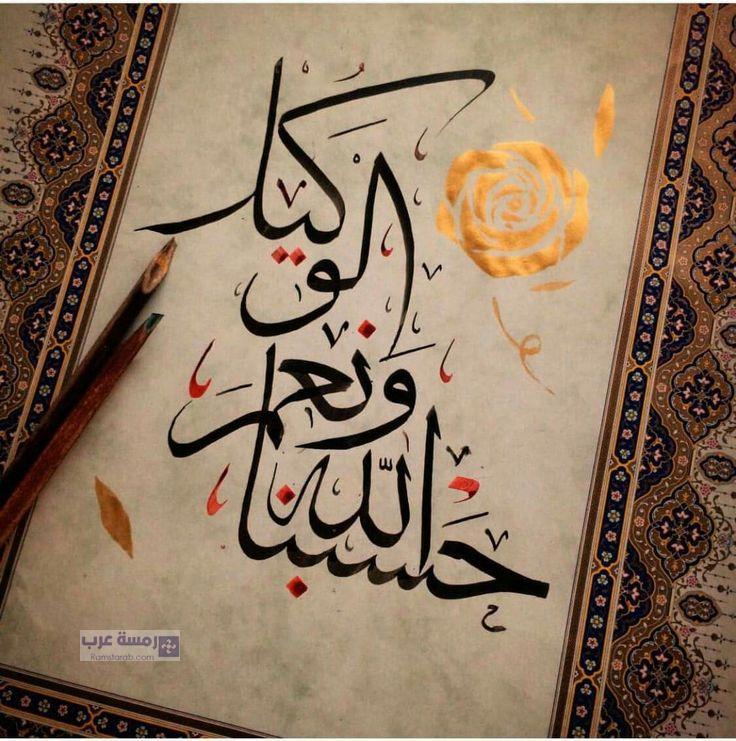 حسبنا الله
ونعم
الوكيل
رمسة عرب
Ramstarab.com